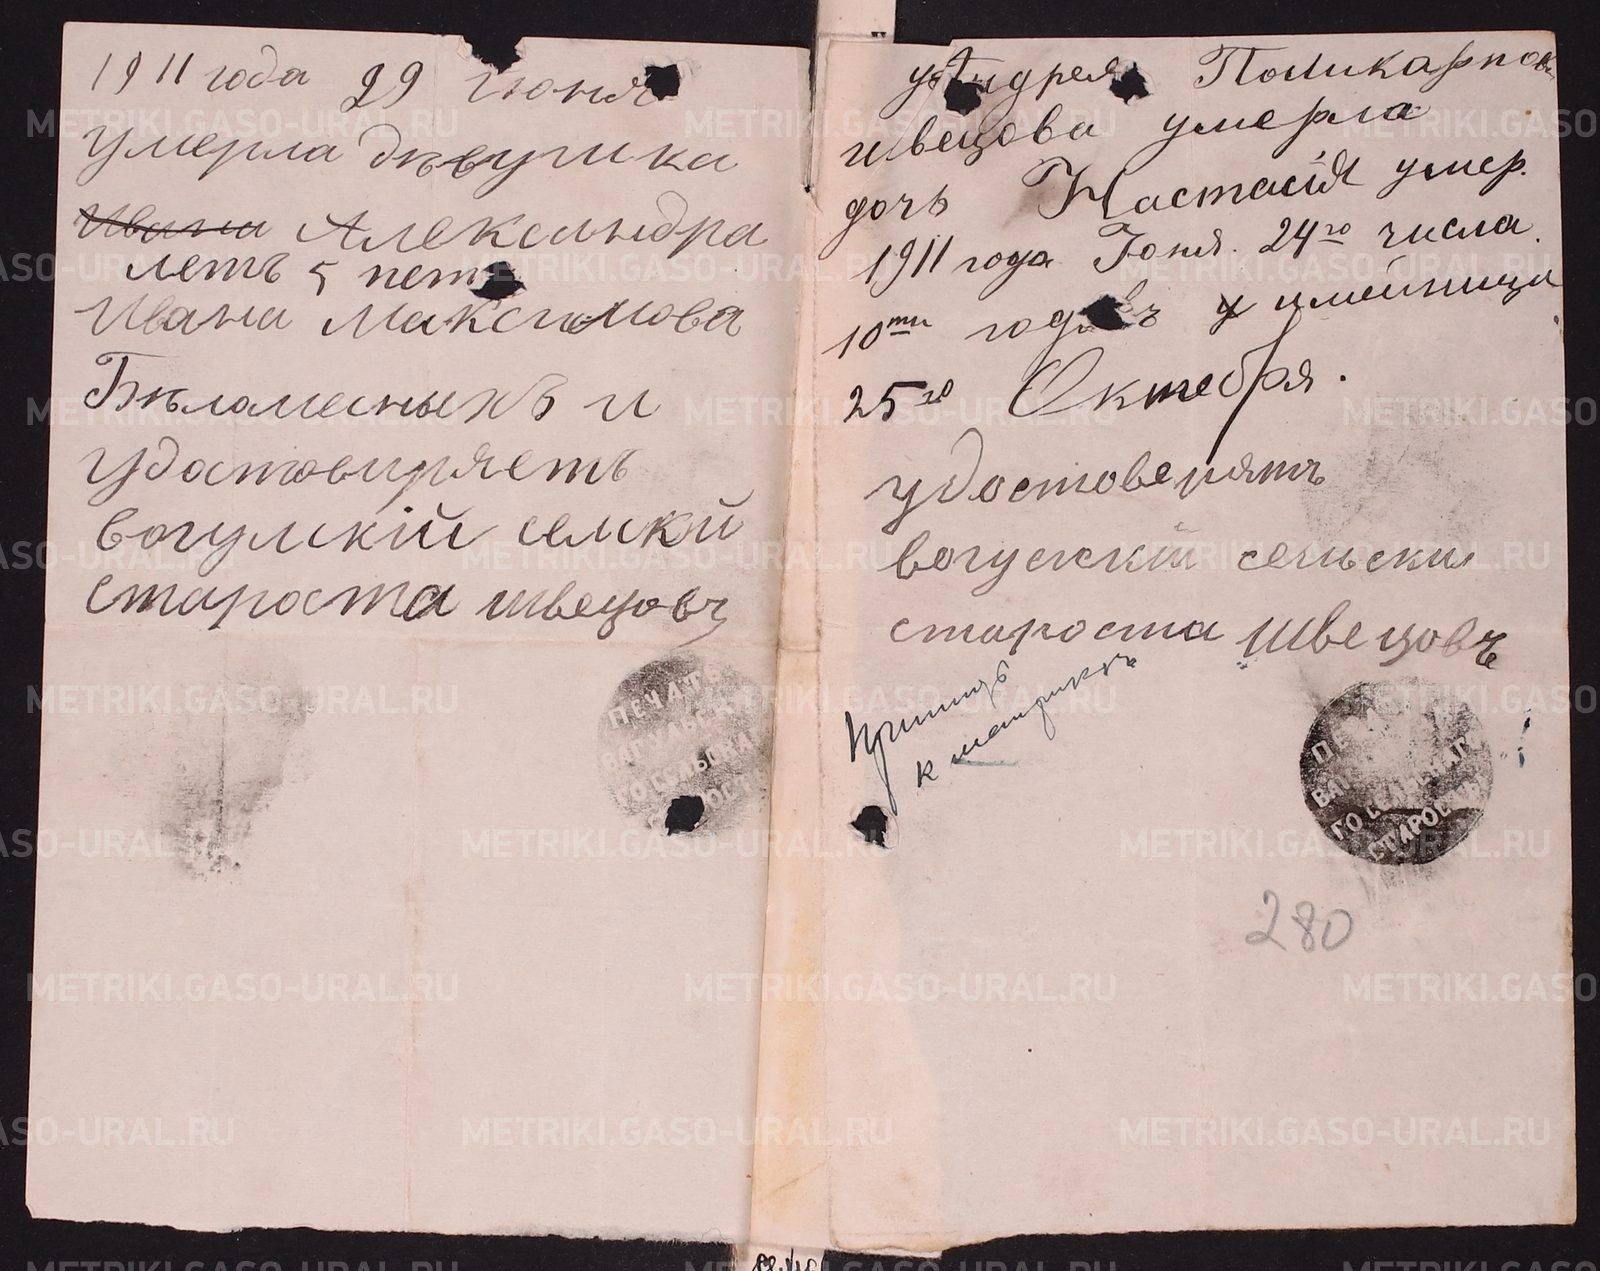 1911 года 29 июня
умерла дѣвушка
Ивана Александра
летъ 5 петь
Ивана Максимова
Бѣламесныхъ и
удостовиряетъ
вогулскій селскй
староста швецовъ
ПЕЧАТЬ
ВАГУЛЬСКА
ГО СЕЛЬСКА
у Андрея Поликарпов
швецова умерла
дочь Настасія умер.
1911 года Іюня. 24го числа.
10ти годовъ имейница
25го Октебря.
удостоверятъ
вогулскій сельски
староста Швецовъ
Пришить
к метрикѣ
ГО СЕЛЬСКАГ
СТАРОСТЫ
280
METRIKI.GASO-URAL.RU